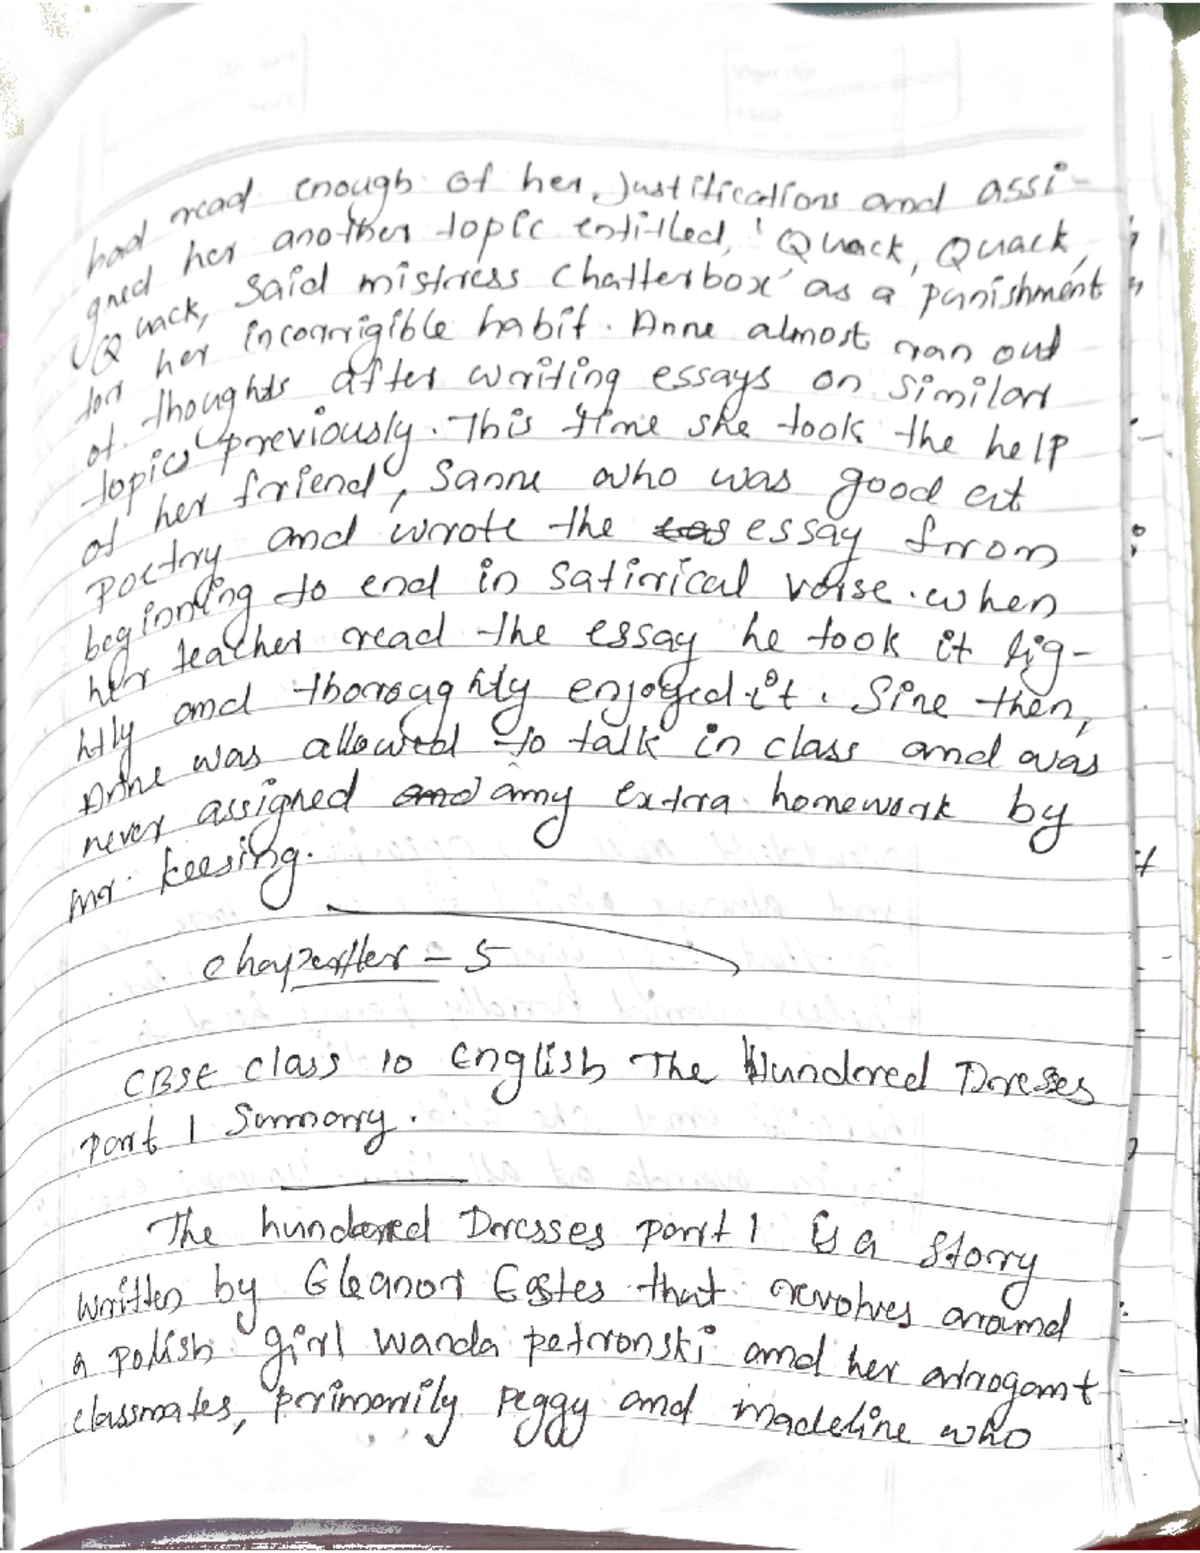 had read enough of her Justifications and assi-
gned her another topic entitled, 'Quack, Quack,
Quack, said mistress chatterbox' as a punishment
for her incorrigible habit. Anne almost ran out
of thoughts after writing essays on similar
topics previously. This time she took the help
of her friend, Sanne who was good at
poetry and wrote the essay from
beginning to end in satirical verse. when
her teacher read the essay he took it lig-
htly and thoroughly enjoyed it. Sine then,
Anne was allowed to talk in class and was
never assigned any extra homework by
mr. keesing.
chapter - 5
CBSE class 10 English The Hundered Dresses
part 1 Summary.
The hundered Dresses part 1 is a Story
written by Eleanor Estes that revolves around
a polish girl wanda petronski and her arrogant
classmates, primarily peggy and madeline who